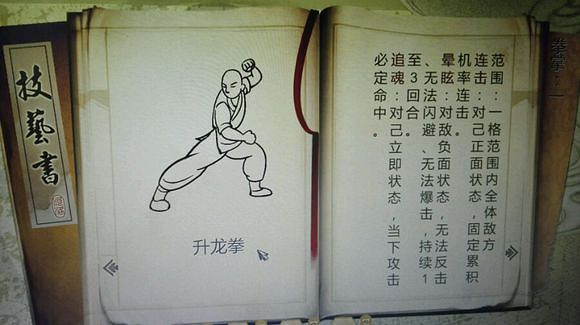 技藝書
升龙拳
范围：一格范围内全体敌方
连击：对己。正面状态，固定累积
机率连击。
晕眩：对敌。负面状态，无法反击
、无法闪避、无法爆击，持续1
至3回合。
追魂：对己。立即状态，当下攻击
必定命中。